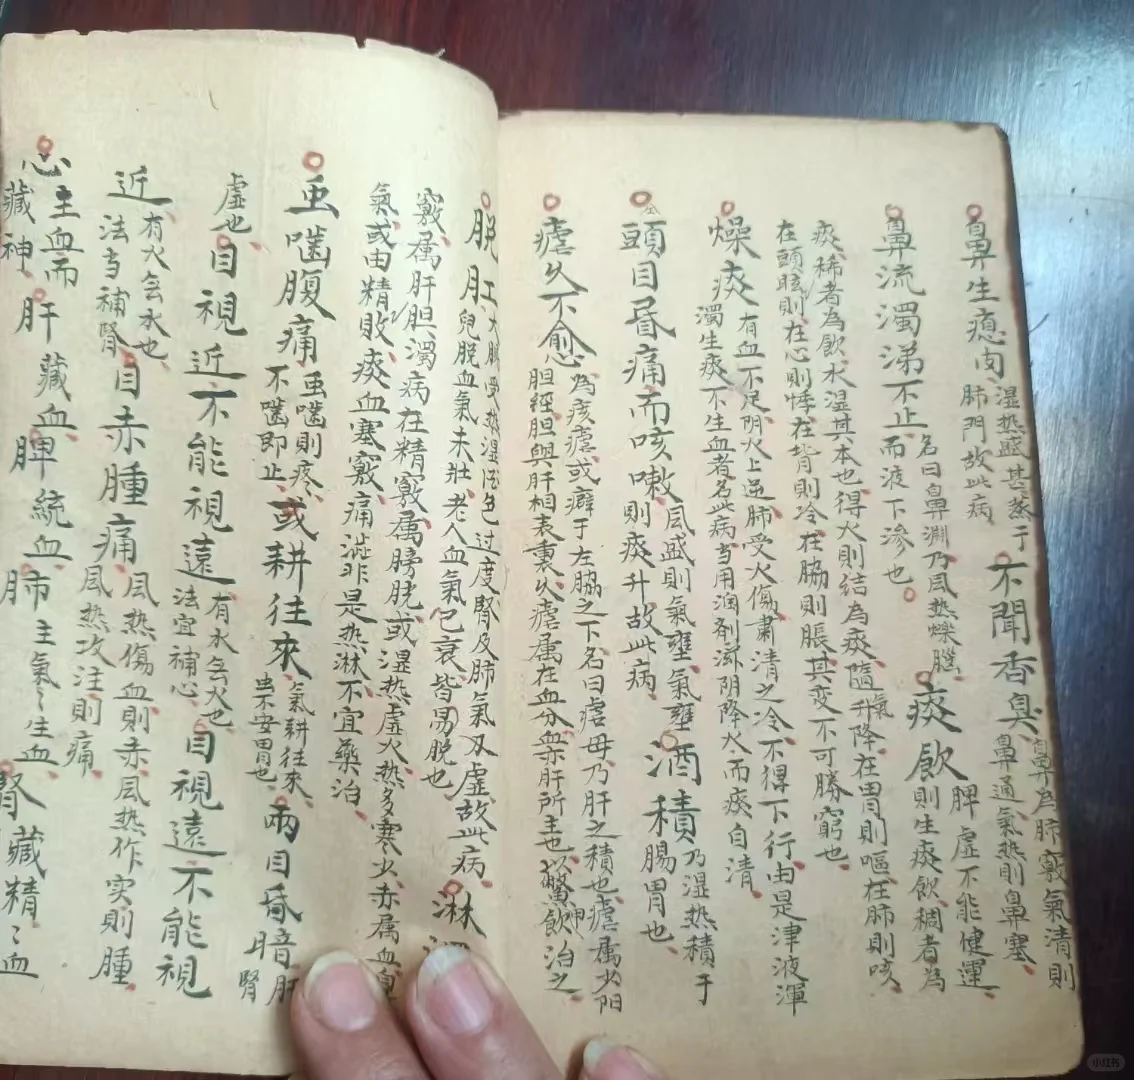 鼻生瘜肉
湿热盛甚蒸于
肺門故此病
不聞香臭
鼻為肺竅氣清則
鼻通氣热則鼻塞
鼻流濁涕不止
名曰鼻淵乃風热爍腦
而液下滲也
痰飲
脾虛不能健運
則生痰飲稠者為
痰稀者為飲水湿其本也得火則結為痰隨氣升降在胃則嘔在肺則咳
在頭眩則在心則悸在背則冷在脇則脹其变不可勝窮也
燥痰
有血不足阴火上逆肺受火傷肅清之冷不得下行由是津液渾
濁生痰不生血者名此病当用润剂滋阴降火而痰自清
頭目昏痛而咳嗽
風盛則氣壅氣壅
則痰升故此病
酒積
乃湿热積于
腸胃也
瘧久不愈
為痎瘧或癖于左脇之下名曰瘧母乃肝之積也瘧属少阳
胆經胆與肝相表裏久瘧属在血分血亦肝所主也以鱉甲飲治之
脱肛
大腸受热湿酒色过度腎及肺氣刄虛故此病
兒脱血氣未壯老人血氣已衰皆昜脱也
淋
竅属肝胆濁病在精竅属膀胱或湿热虚火热多寒少赤属血
氣或由精敗痰血塞竅痛澁非是热淋不宜藥治
虫嚙腹痛
虫嚙則疼
不嚙即止
或耕往來
氣耕往來
虫不安胃也
两目昏暗
肝
腎
虛也
目視近不能視遠
有水会火也
法宜補心
目視遠不能視
近
有火会水也
法当補腎
目赤腫痛
風热傷血則赤風热作实則腫
風热攻注則痛
心
主血而
藏神
肝藏血脾統血肺主氣〻生血腎藏精〻血